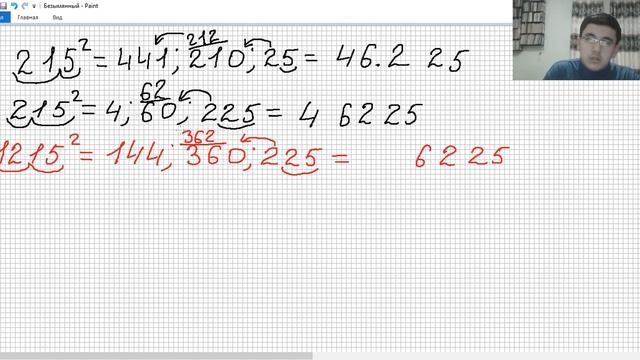 Безымянный - Paint
Главная Вид
212
215² = 441; 210; 25 = 46.2 25
62
215² = 4; 60; 225 = 4 6225
362
1215² = 144; 360; 225 = 6225